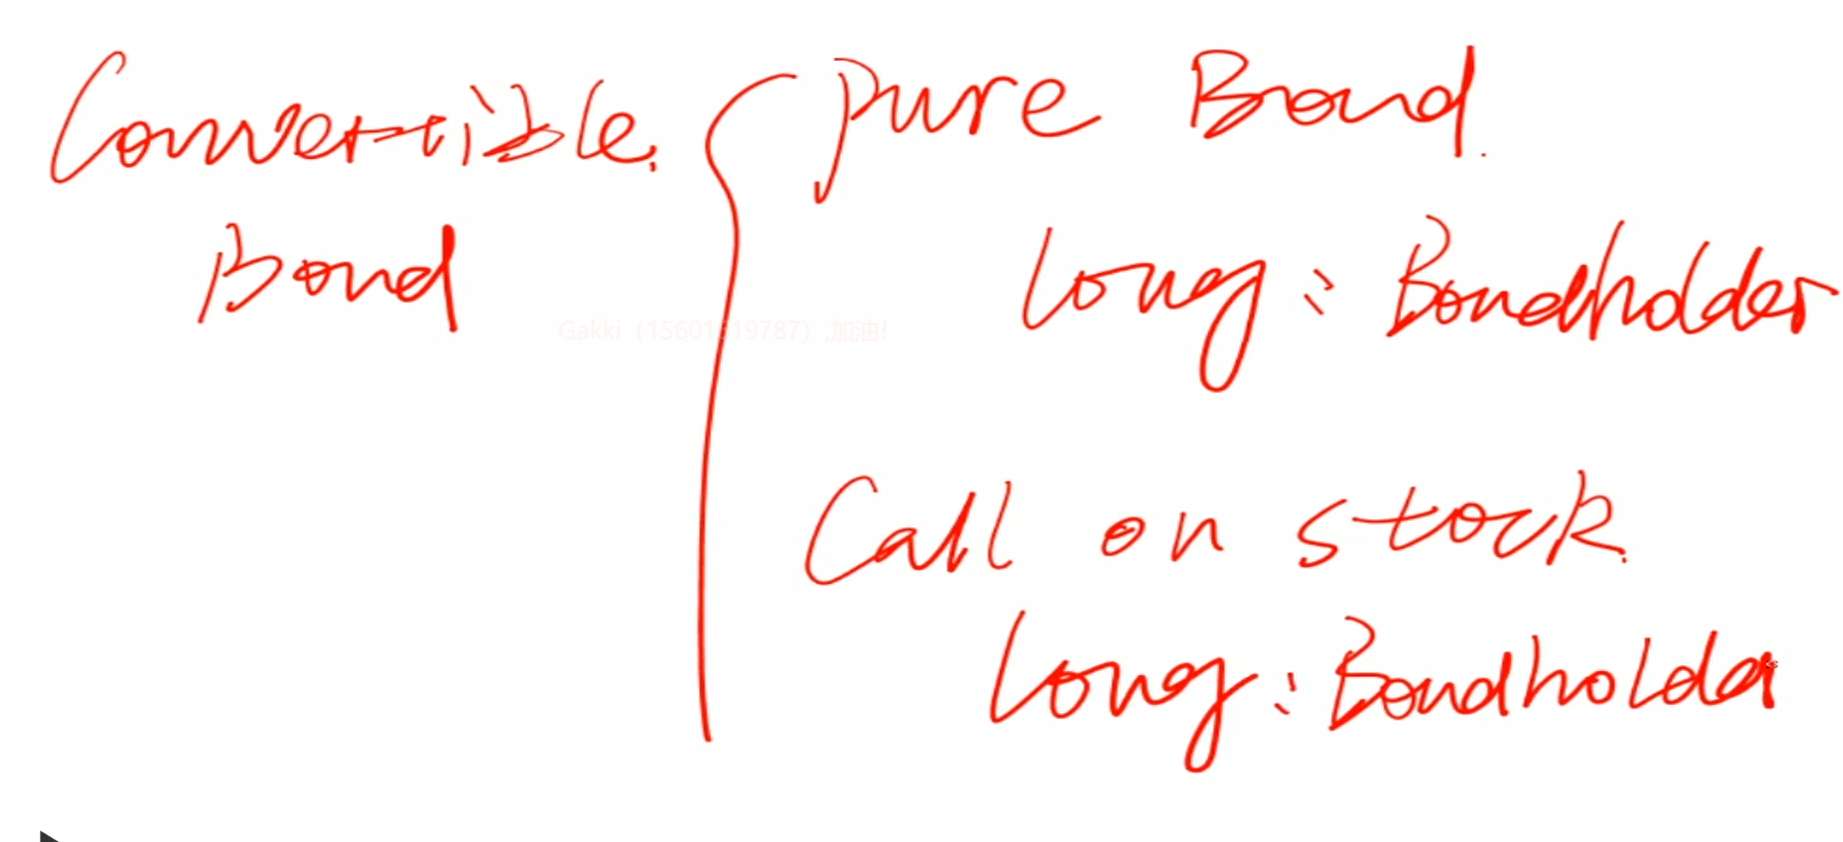 Convertible
Bond
pure Bond
Long: Bondholder
Call on stock
Long: Bondholder